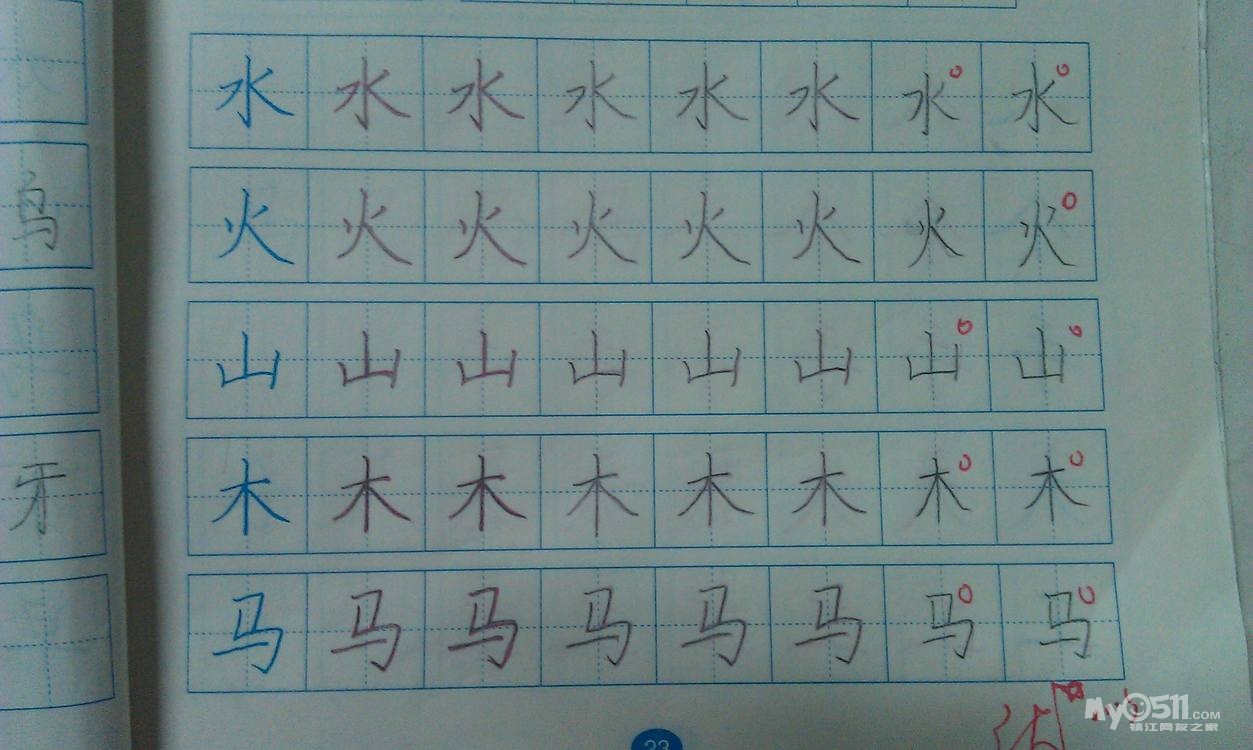 鸟
牙
水 水 水 水 水 水 水 水
火 火 火 火 火 火 火 火
山 山 山 山 山 山 山 山
木 木 木 木 木 木 木 木
马 马 马 马 马 马 马 马
23
My0511.COM
镇江网友之家